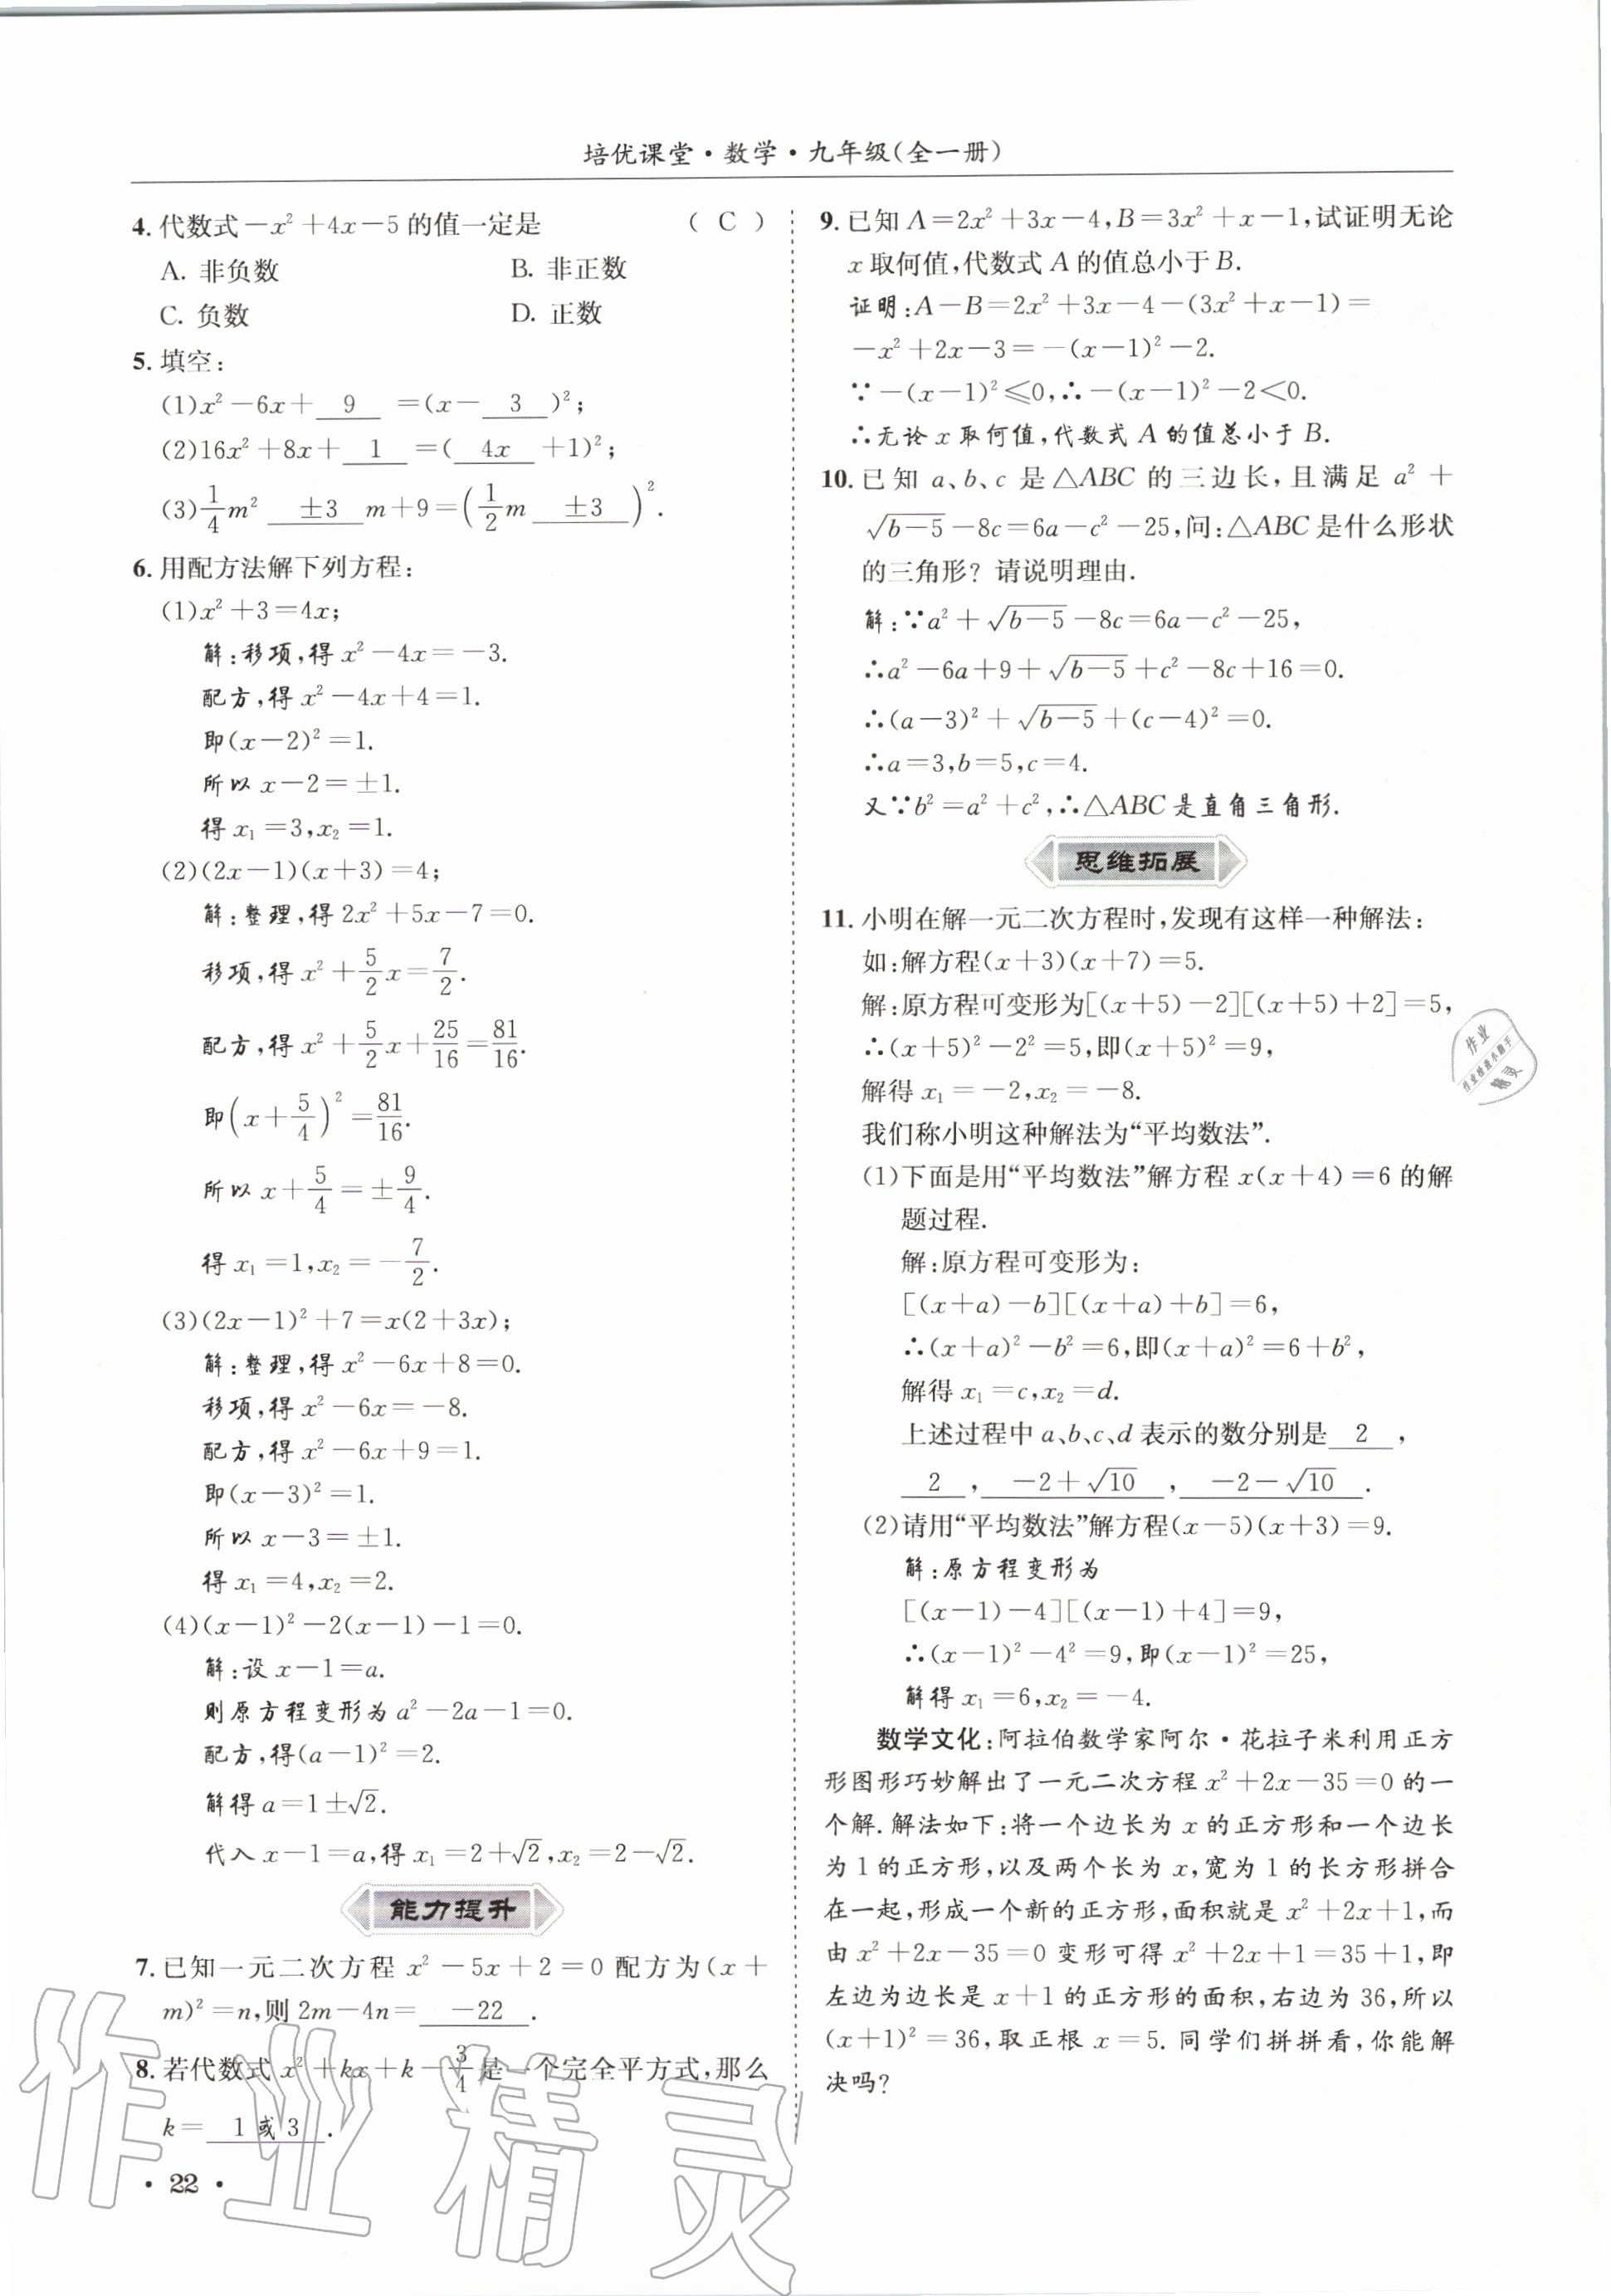 培优课堂·数学·九年级(全一册)
4. 代数式－x²＋4x－5的值一定是 ( C )
A. 非负数 B. 非正数
C. 负数 D. 正数
5. 填空：
(1)x²－6x＋ 9 ＝(x－ 3 )²；
(2)16x²＋8x＋ 1 ＝( 4x ＋1)²；
(3)1/4 m² ±3 m＋9＝(1/2 m ±3 )².
6. 用配方法解下列方程：
(1)x²＋3＝4x；
解：移项，得 x²－4x＝－3.
配方，得 x²－4x＋4＝1.
即(x－2)²＝1.
所以 x－2＝±1.
得 x₁＝3，x₂＝1.
(2)(2x－1)(x＋3)＝4；
解：整理，得 2x²＋5x－7＝0.
移项，得 x²＋5/2 x＝7/2.
配方，得 x²＋5/2 x＋25/16＝81/16.
即(x＋5/4)²＝81/16.
所以 x＋5/4＝±9/4.
得 x₁＝1，x₂＝－7/2.
(3)(2x－1)²＋7＝x(2＋3x)；
解：整理，得 x²－6x＋8＝0.
移项，得 x²－6x＝－8.
配方，得 x²－6x＋9＝1.
即(x－3)²＝1.
所以 x－3＝±1.
得 x₁＝4，x₂＝2.
(4)(x－1)²－2(x－1)－1＝0.
解：设 x－1＝a.
则原方程变形为 a²－2a－1＝0.
配方，得(a－1)²＝2.
解得 a＝1±√2.
代入 x－1＝a，得 x₁＝2＋√2，x₂＝2－√2.
能力提升
7. 已知一元二次方程 x²－5x＋2＝0 配方为(x＋
m)²＝n，则 2m－4n＝ －22 .
8. 若代数式 x²＋kx＋k－3/4 是一个完全平方式，那么
k＝ 1或3 .
· 22 ·
9. 已知 A＝2x²＋3x－4，B＝3x²＋x－1，试证明无论
x 取何值，代数式 A 的值总小于 B.
证明：A－B＝2x²＋3x－4－(3x²＋x－1)＝
－x²＋2x－3＝－(x－1)²－2.
∵－(x－1)²≤0，∴－(x－1)²－2＜0.
∴无论 x 取何值，代数式 A 的值总小于 B.
10. 已知 a、b、c 是△ABC 的三边长，且满足 a²＋
√(b－5)－8c＝6a－c²－25，问：△ABC 是什么形状
的三角形？请说明理由.
解：∵a²＋√(b－5)－8c＝6a－c²－25，
∴a²－6a＋9＋√(b－5)＋c²－8c＋16＝0.
∴(a－3)²＋√(b－5)＋(c－4)²＝0.
∴a＝3，b＝5，c＝4.
又∵b²＝a²＋c²，∴△ABC 是直角三角形.
思维拓展
11. 小明在解一元二次方程时，发现有这样一种解法：
如：解方程(x＋3)(x＋7)＝5.
解：原方程可变形为[(x＋5)－2][(x＋5)＋2]＝5，
∴(x＋5)²－2²＝5，即(x＋5)²＝9，
解得 x₁＝－2，x₂＝－8.
我们称小明这种解法为“平均数法”.
(1)下面是用“平均数法”解方程 x(x＋4)＝6 的解
题过程.
解：原方程可变形为：
[(x＋a)－b][(x＋a)＋b]＝6，
∴(x＋a)²－b²＝6，即(x＋a)²＝6＋b²，
解得 x₁＝c，x₂＝d.
上述过程中 a、b、c、d 表示的数分别是 2 ，
2 ， －2＋√10 ， －2－√10 .
(2)请用“平均数法”解方程(x－5)(x＋3)＝9.
解：原方程变形为
[(x－1)－4][(x－1)＋4]＝9，
∴(x－1)²－4²＝9，即(x－1)²＝25，
解得 x₁＝6，x₂＝－4.
数学文化：阿拉伯数学家阿尔·花拉子米利用正方
形图形巧妙解出了一元二次方程 x²＋2x－35＝0 的一
个解. 解法如下：将一个边长为 x 的正方形和一个边长
为 1 的正方形，以及两个长为 x，宽为 1 的长方形拼合
在一起，形成一个新的正方形，面积就是 x²＋2x＋1，而
由 x²＋2x－35＝0 变形可得 x²＋2x＋1＝35＋1，即
左边为边长是 x＋1 的正方形的面积，右边为 36，所以
(x＋1)²＝36，取正根 x＝5. 同学们拼拼看，你能解
决吗？
作业
作业检查小助手
精灵
作业精灵